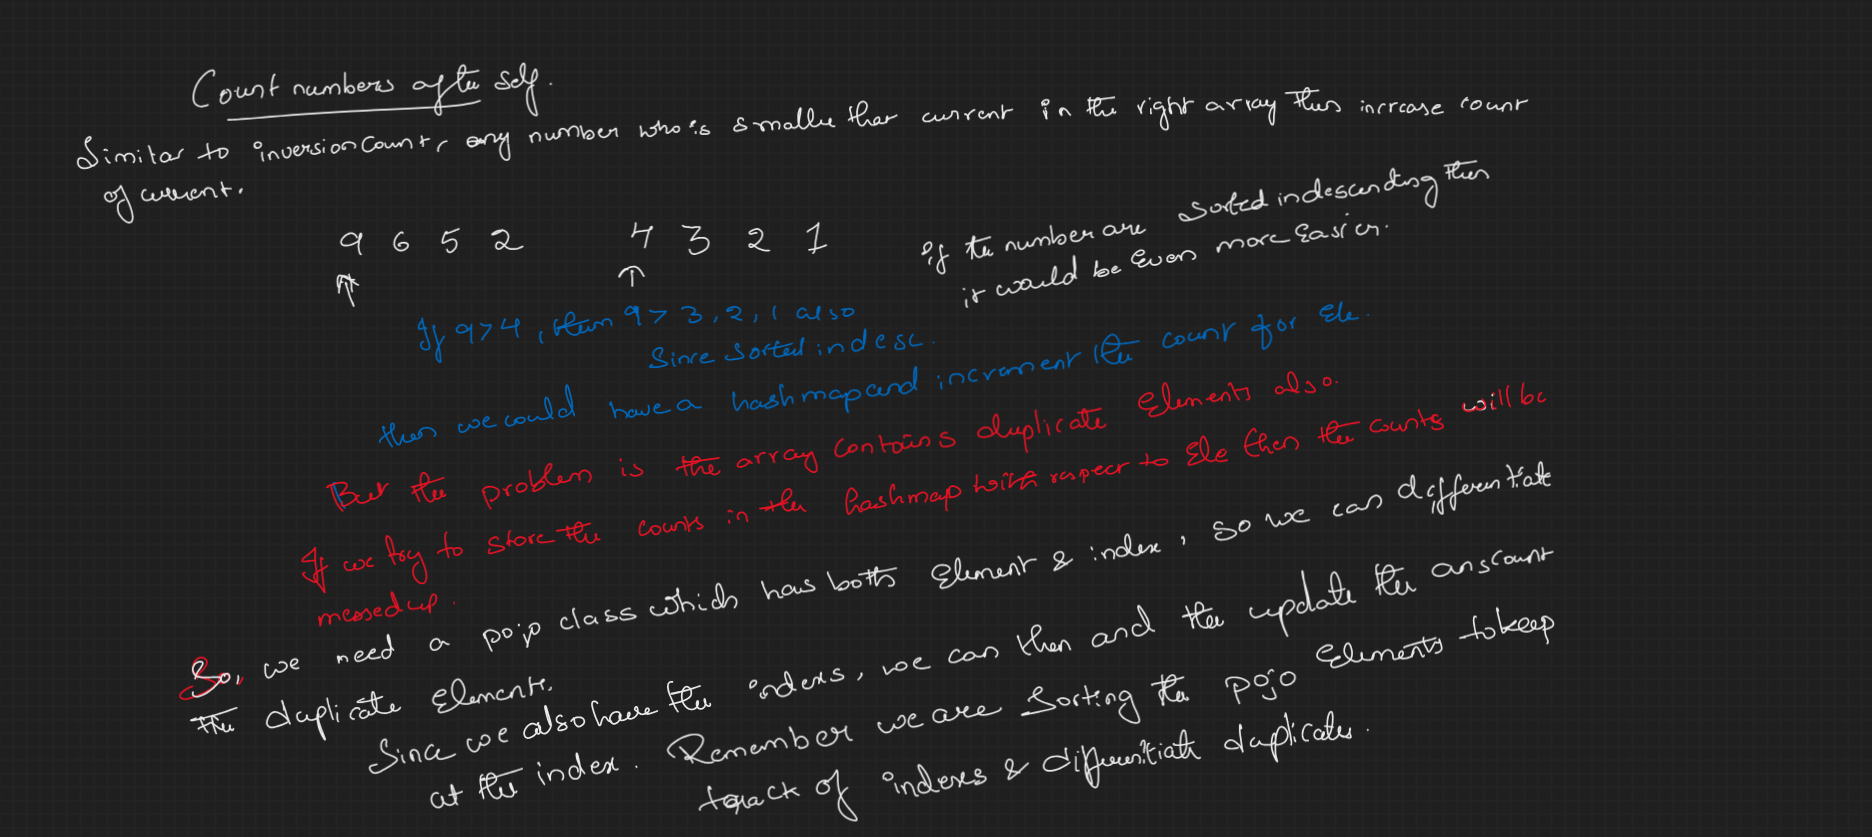 Count numbers after self.
Similar to inversion count, any number who is smaller that current in the right array then increase count
of current.
9 6 5 2 4 3 2 1
if the number are sorted in descending then
it would be even more easier.
If 9>4, then 9 > 3, 2, 1 also
Since sorted in desc.
then we could have a hashmap and increment the count for Ele.
But the problem is the array contains duplicate Elements also.
If we try to store the counts in the hashmap with respect to Ele then the counts will be
messed up.
So, we need a pojo class which has both Element & index, so we can differentiate
the duplicate elements.
Since we also have the indexs, we can then and the update the ans count
at the index. Remember we are Sorting the pojo Elements to keep
track of indexes & differentiate duplicates.